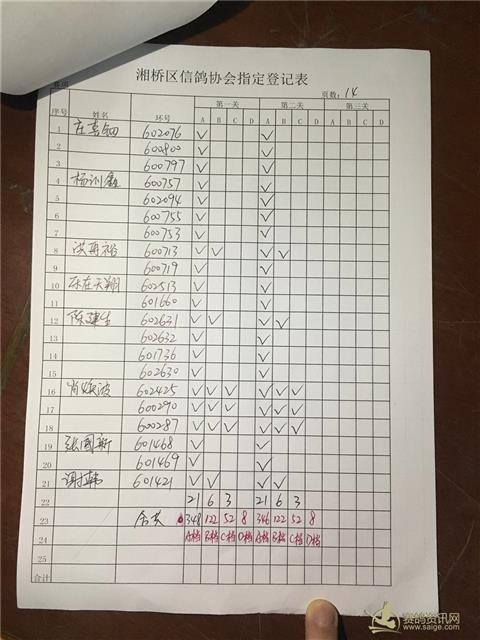 湘桥区信鸽协会指定登记表
页数：14
序号 姓名 环号 第一关 第二关 第三关
A B C D A B C D A B C D
1 602076 √ √
2 600800 √ √
3 600797 √ √
4 杨训鑫 600757 √ √
5 602094 √ √
6 600755 √ √
7 600753 √ √
8 洪再裕 600713 √ √ √ √
9 600719 √ √
10 乐在天翔 602513 √ √
11 601660 √ √
12 陈建生 602631 √ √ √ √
13 602632 √ √
14 601736 √ √
15 602630 √ √
16 肖俊波 602425 √ √ √ √ √ √
17 600290 √ √ √ √ √ √
18 600287 √ √ √ √ √ √
19 张国新 601468 √ √
20 601469 √ √
21 谢韩 601421 √ √ √ √
22 21 6 3 21 6 3
23 合共 348 122 52 8 346 122 52 8
24 A档 B档 C档 D档 A档 B档 C档 D档
25
合计
赛鸽资讯网
www.saige.com